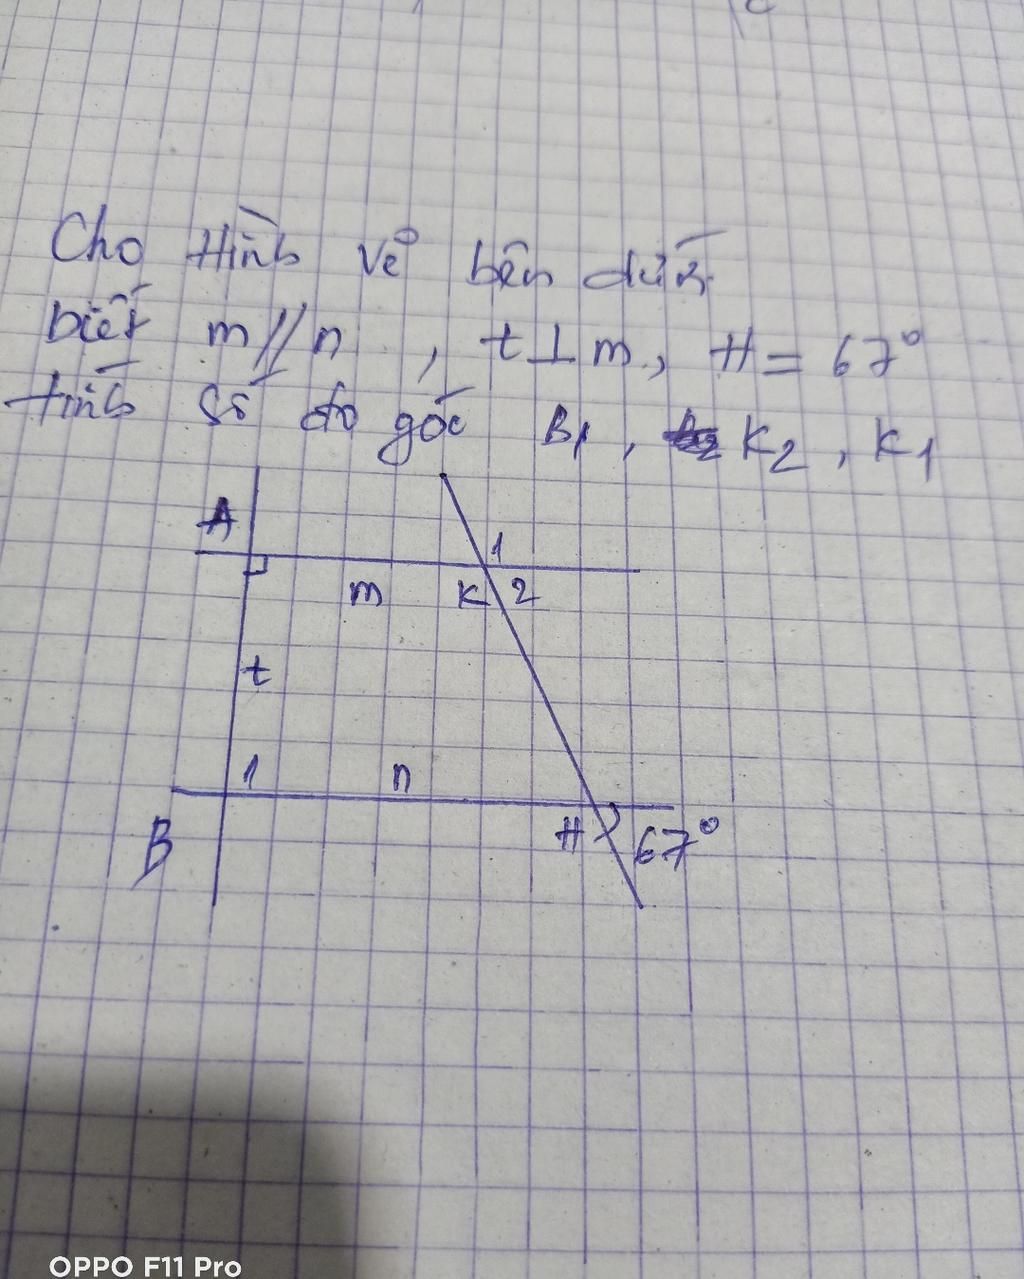 Cho Hình vẽ bên dưới
biết m//n , t⊥m, H = 67°
tính số đo góc B1 , K2 , K1
A
1
m K 2
t
1 n
B H 67°
OPPO F11 Pro